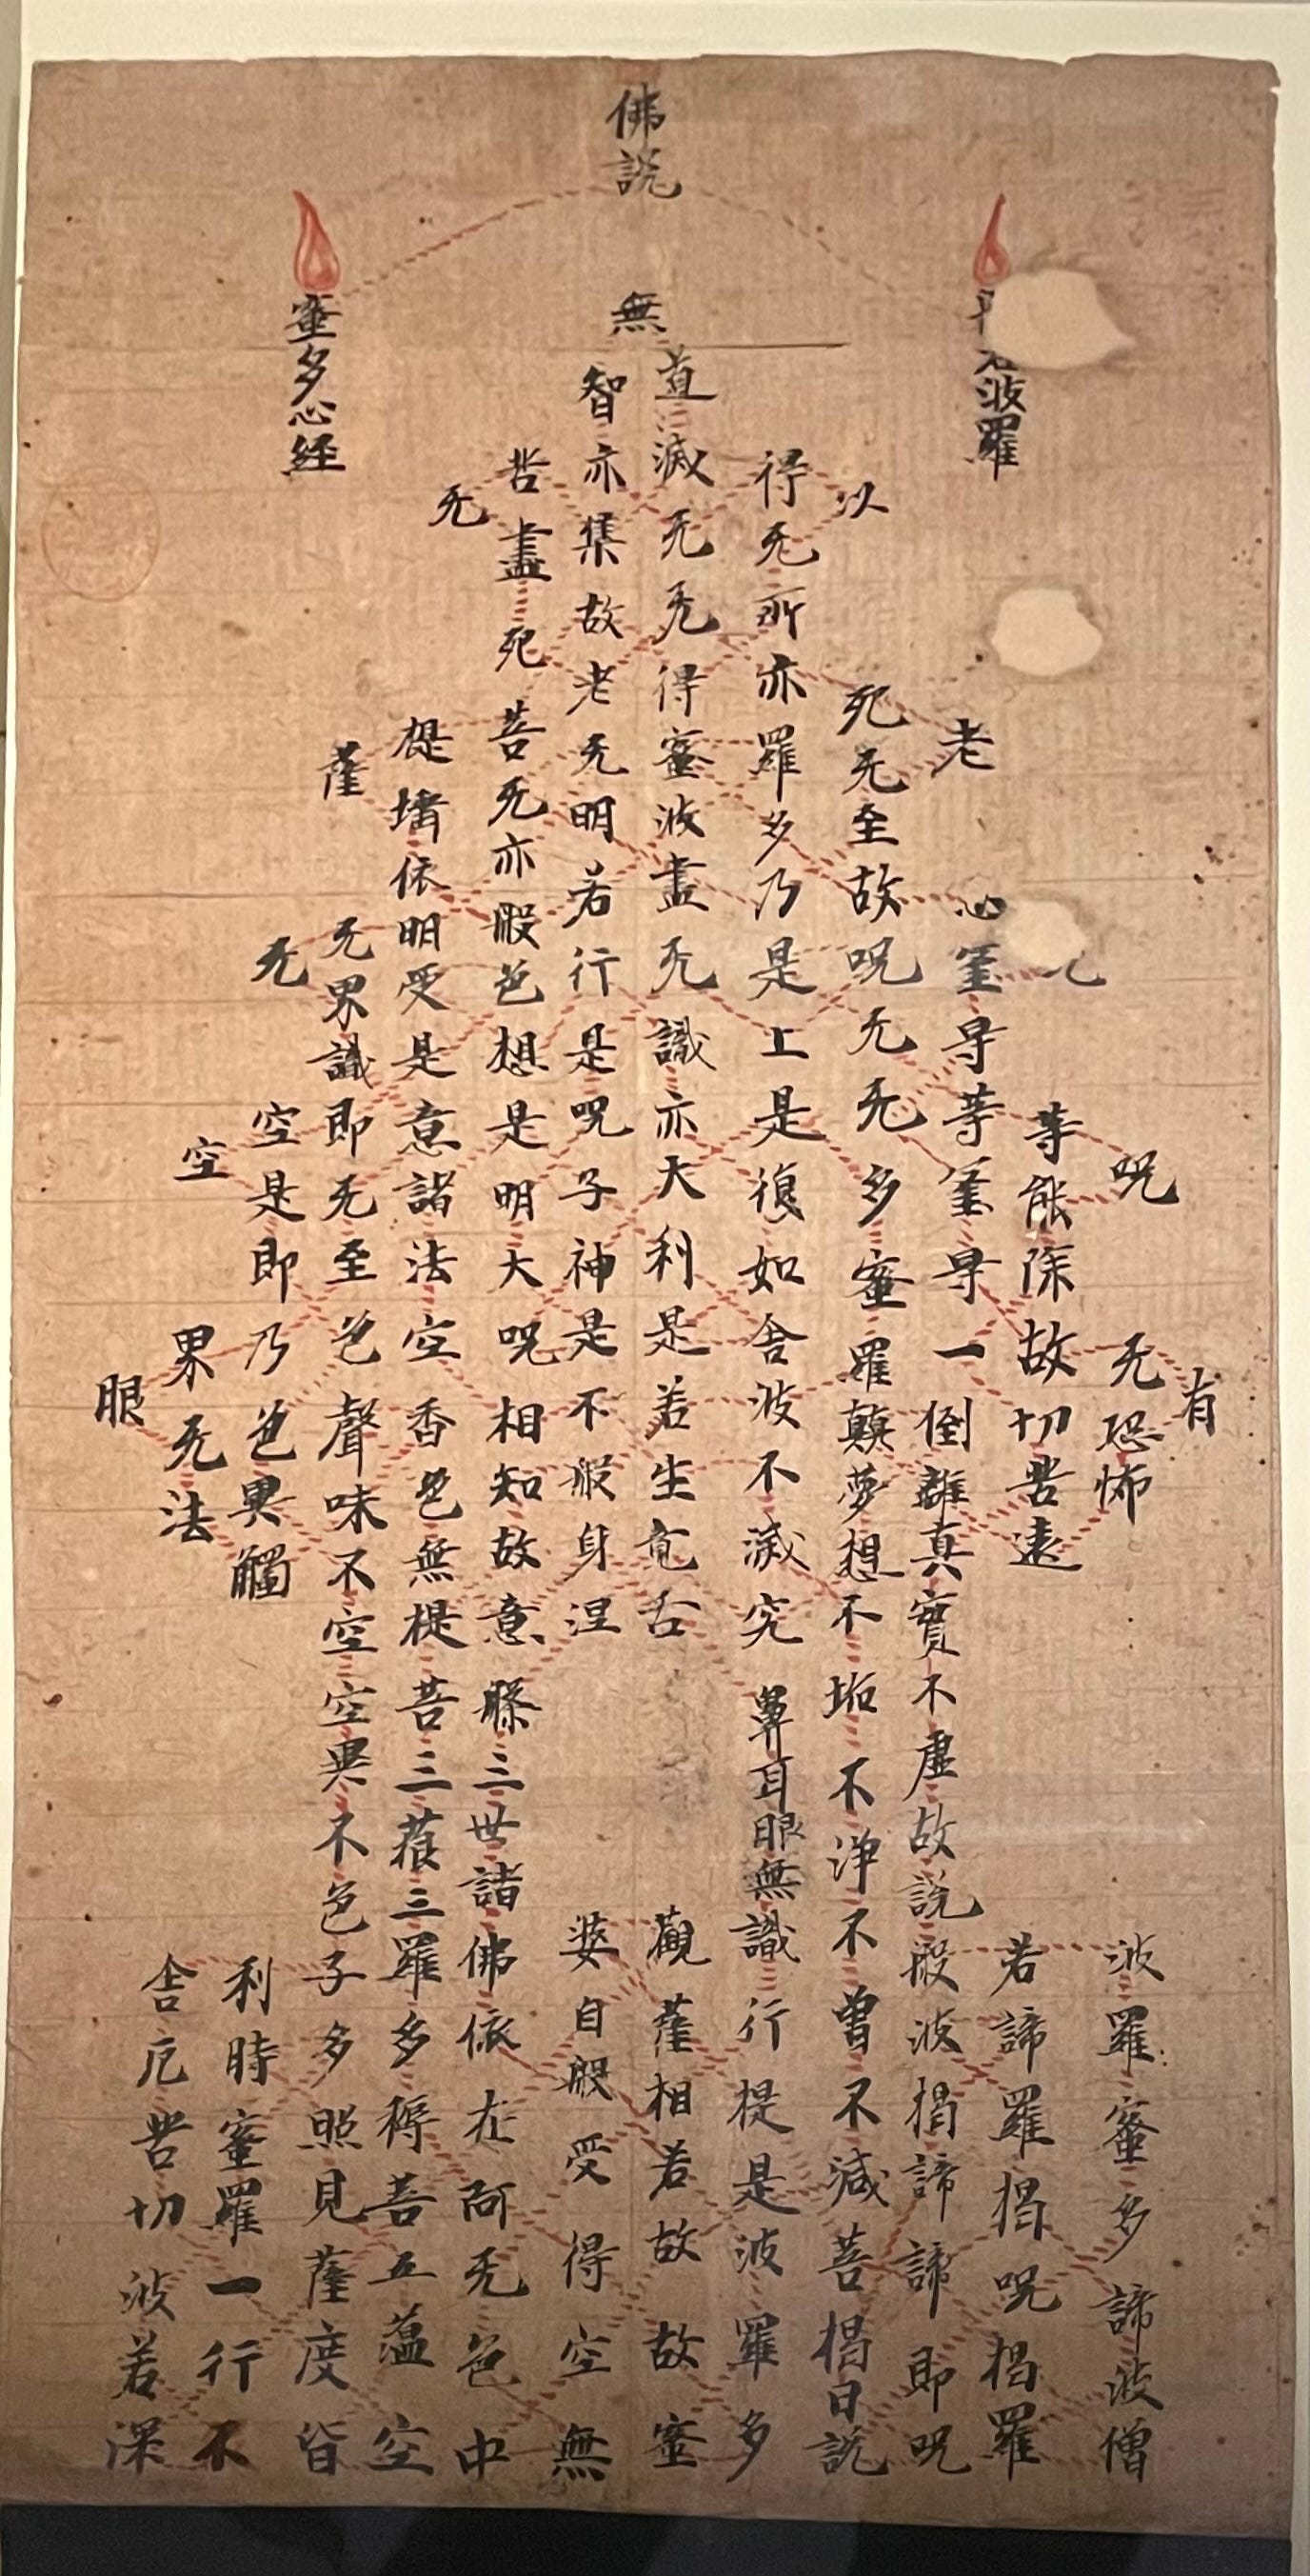 佛說
波羅
蜜多心經
有
呪无恐怖波羅蜜多諦波僧
等能除故切苦遠若諦羅揭呪揭羅
老心罣㝵等罣㝵一倒離真實不虛故說般波揭諦諦即呪
以死无至故呪无无多蜜羅顛夢想不垢不淨不曾不減菩揭曰說
得无所亦羅多乃是上是復如舍波不滅究鼻耳眼無識行提是波羅多
無
道滅无无得蜜波盡无識亦大利是若生竟舌觀薩相若故故蜜
智亦集故老无明若行是呪子神是不般身涅婆自般受得空無
苦盡死菩无亦般色想是明大呪相知故意槃三世諸佛依在阿无色中
无提埵依明受是意諸法空香色無提菩三藐三羅多耨菩五蘊空
薩无界識即无至色聲味不空空異不色子多照見薩度皆
无空是即乃色異觸利時蜜羅一行不
空界无法舍厄苦切波若深
眼